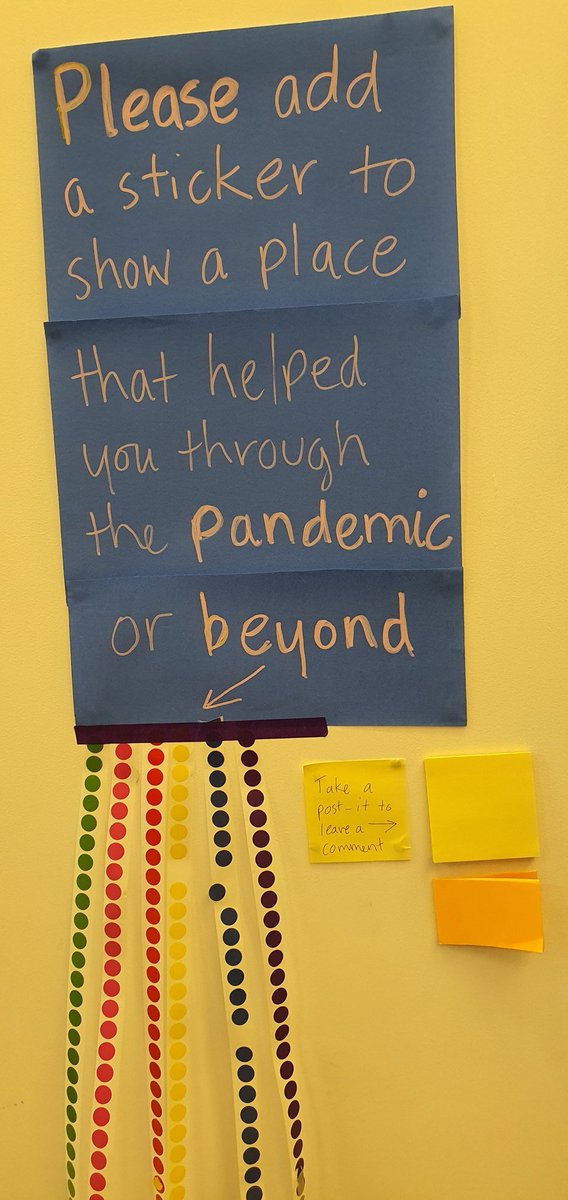 Please add
a sticker to
show a place
that helped
you through
the pandemic
or beyond
Take a
post-it to
leave a →
comment